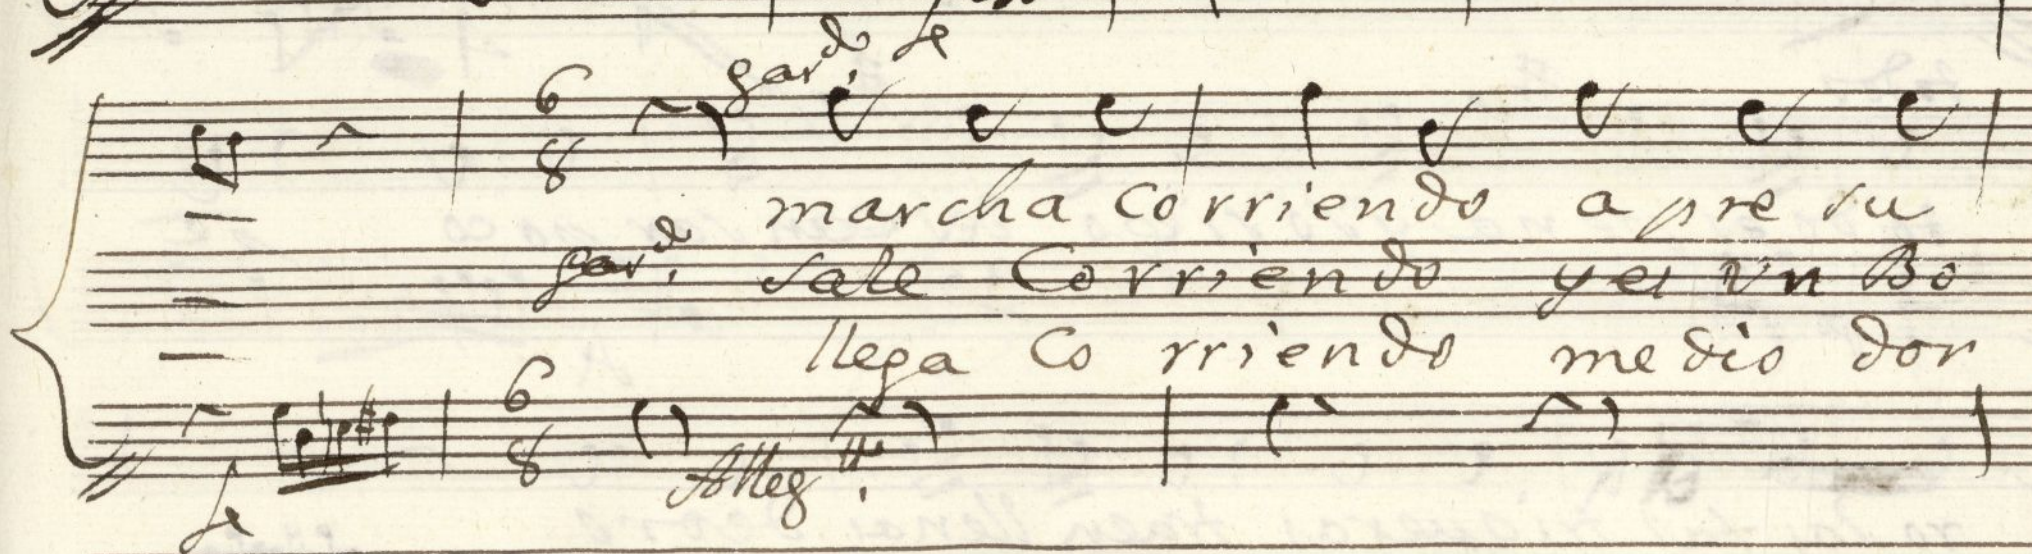 gar.d fe
6
8
marcha Corriendo apresu
gar.d sale Corriendo y es vn Bo
llega Corriendo medio dor
6
8
Alleg.tt
fe